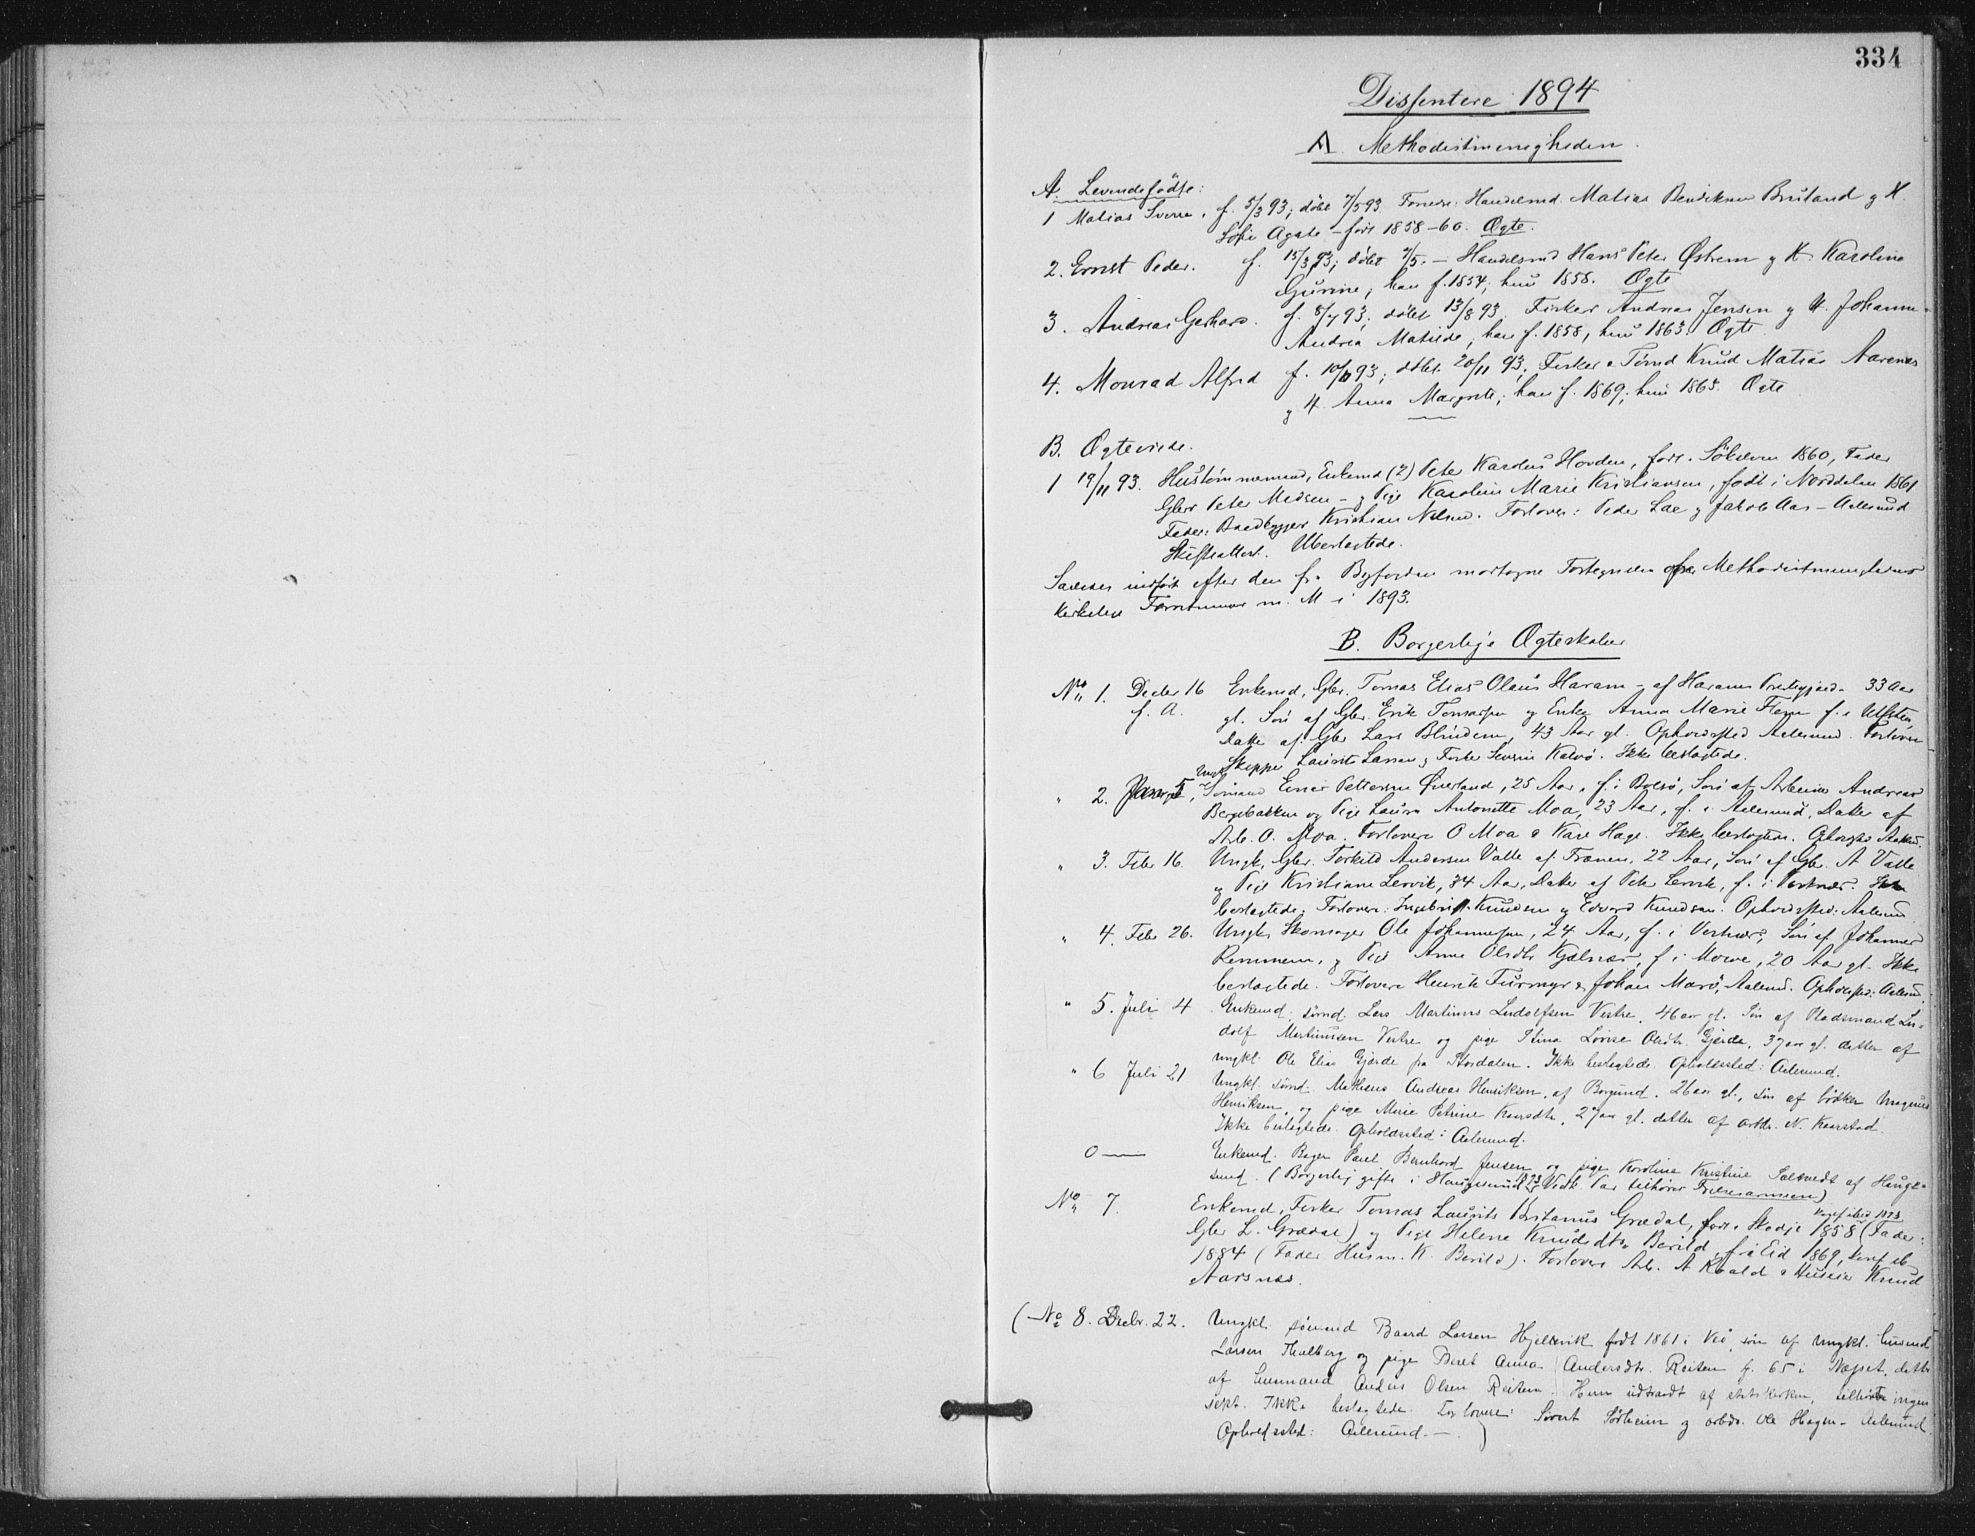 334
Dissentere 1894
A Methodistmenigheden.
A. Levendefødte:
1 Matias Sverre, f. 5/3 93; døbt 7/5 93. Forældre: Handelsmd. Matias Bendiksen Bruland og H.
Sofie Agate – født 1858–60. Ægte.
2. Ernst Peder. f. 15/3 93; døbt 7/5. – Handelsmd Hans Peter Østrem og H. Karoline
Gurine, han f. 1854; hun 1858. Ægte
3. Andreas Gerhard. f. 8/7 93; døbt 13/8 93. Fisker Andreas Jensen og H. Johanne
Andrea Matilde, han f. 1858, hun 1863. Ægte
4. Monrad Alfred f. 10/10 93; døbt 20/11 93; Fisker Tømd Knud Matias Aarenes
og H. Anna Margrete; han f. 1869; hun 1865. Ægte
B. Ægteviede.
1 19/11 93. Hustømmermand, Enkemd (2) Peter Kardus Hovden, født 1860, Fader
Gbr Peter Madsen – og Pige Karoline Marie Kristiansen, født i Norddalen 1861
Fader: Baadbygger Kristian Nilsen. Forlovere: Peder Sæ og Jakob Aas – Aalesund
Skifteattest. Ubeslægtede.
Saaledes indført efter den fra Byfogden modtagne Fortegnelse fra Methodistmenighedens
kirkelige Forretninger m. M i 1893.
B. Borgerlige Ægteskaber
No 1. Decbr 16 Enkemd, Gbr. Tomas Elias Olaus Haram – af Harams Prestegjeld – 33 Aar
f. A. gl. Søn af Gbr. Erik Tomassen og Enke Anna Marie Flem f. i Ulsten,
Datter af Gbr Lars Blindem, 43 Aar gl. Opholdssted Aalesund. Forlovere
Skipper Laurits Larsen og Fisker Severin Kalvø. Ikke beslægtede.
" 2. Januar 5, Ungk. Sømand Einar Pettersen Øverland, 25 Aar, f. i Bolsø, Søn af Arbeider Andreas
Bergebakken og Pige Laura Antonette Moa, 23 Aar, f. i Aalesund, Datter af
Arb. O. Moa. Forlovere O Moa & Kare Hage. Ikke beslægtede. Opholdssted Aalesund.
" 3. Febr 16. Ungk. Gbr. Torkild Andersen Valle af Tranen. 22 Aar, Søn af Gbr. A Valle
og Pige Kristiane Lervik, 34 Aar, Datter af Peter Lervik, f. i Vestnæs. Ikke
beslægtede. Forlovere: Ingebrigt Knudsen og Edvard Knudsen. Opholdssted: Aalesund.
" 4. Febr 26. Ungk. Skomager Ole Johannessen, 24 Aar, f. i Vestnæs, Søn af Johannes
Remmem, og Pige Anne Olsdtr Kjølnæs, f. i Morve, 20 Aar gl. Ikke
beslægtede. Forlovere Henrik Furmyr & Johan Maro, Aalesund. Opholdssted: Aalesund.
" 5. Juli 4 Enkemd. sømd. Lars Martinus Ludolfsen Vestre, 46 aar gl. Søn af Pladsmand Lu-
dolf Martinussen Vestre og pige Stina Lovise Olsdtr. Gjerde, 37 aar gl. datter af
ungkl. Ole Elias Gjerde fra Stordalen. Ikke beslægtede. Opholdssted: Aalesund.
" 6 Juli 21 Ungkl. sømd. Matheus Andreas Henriksen, af Borgund. 26 aar gl., søn af bødker Magnus
Henriksen, og pige Marie Petrine Knarsdtr, 27 aar gl. datter af arbdr. N. Kaarstad.
Ikke beslægtede. Opholdssted: Aalesund.
0 — Enkemd. Bager Paul Bernhard Jensen og pige Karoline Kristine Soltvedt af Hauge-
sund. (Borgerlig gifte i Haugesund 1893. Vedk. Par tilhører Frelsesarmeen)
No 7. Enkemd, Fisker Tomas Laurits Britanus Grædal, født i Skodje 1858 (Fader: Konf. sted 1873
Gbr L. Grædal) og Pige Helene Knudsdtr Berild, f. i Eid 1869, konf. ib
1884 (Fader Husm. K. Berild). Forlovere Arb. A Kvald & Huseier Knud
Aarsnes.
(No 8. Decbr. 22. Ungkl. sømand Baard Larsen Hjellevik født 1861 i Veø, søn af ungkl. husmd
Larsen Thalberg og pige Beret Anna Andersdtr. Reiten f. 65 i Næsset, datter
af husmand Anders Olsen Reiten. Hun udtraadt af statskirken, tilhører ingen
sekt. Ikke beslægtede. Forlovere: Sivert Sørheim og arbdr. Ole Hagen – Aalesund.
Opholdssted: Aalesund. —)